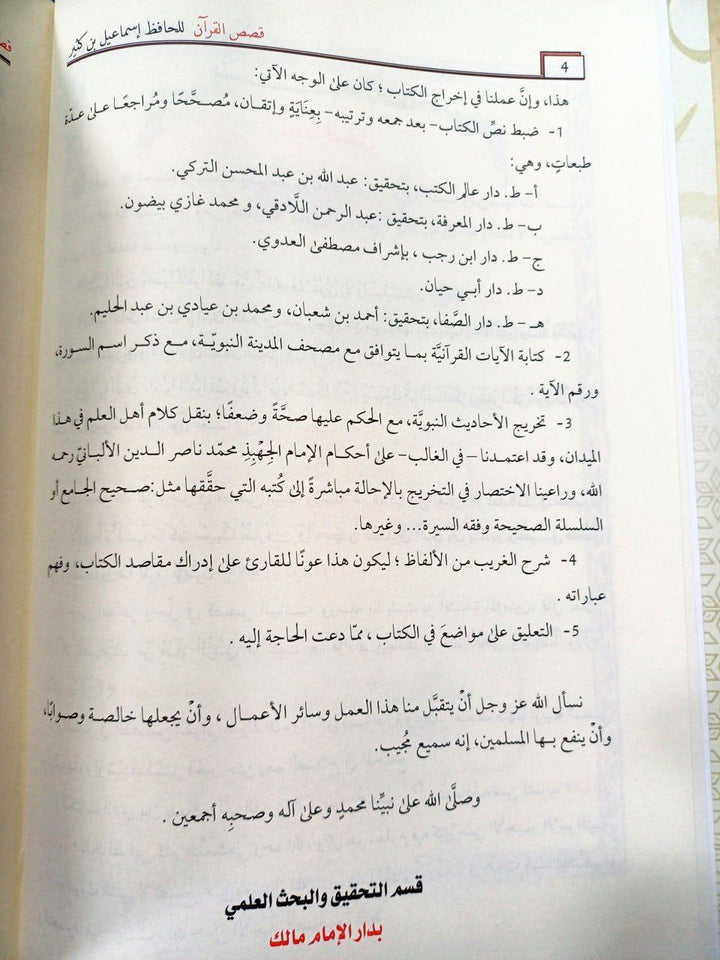 قصص القرآن للحافظ إسماعيل بن كثير
4
هذا، وإنَّ عملنا في إخراج الكتاب ؛ كان على الوجه الآتي:
1- ضبط نصِّ الكتاب- بعد جمعه وترتيبه- بِعِنَايَةٍ وإتقان، مُصحَّحًا ومُراجعًا على عدّة
طبعاتٍ، وهي:
أ- ط. دار عالم الكتب، بتحقيق: عبد الله بن عبد المحسن التركي.
ب- ط. دار المعرفة، بتحقيق :عبد الرحمن اللَّادقي، و محمد غازي بيضون.
ج- ط. دار ابن رجب ، بإشراف مصطفى العدوي.
د- ط. دار أبي حيان.
هـ - ط. دار الصَّفا، بتحقيق: أحمد بن شعبان، ومحمد بن عيادي بن عبد الحليم.
2- كتابة الآيات القرآنيَّة بما يتوافق مع مصحف المدينة النبويّة، مع ذكر اسم السورة،
ورقم الآية .
3- تخريج الأحاديث النبويَّة، مع الحكم عليها صحَّةً وضعفًا؛ بنقل كلام أهل العلم في هذا
الميدان، وقد اعتمدنا – في الغالب- على أحكام الإمام الجِهْبِذِ محمّد ناصر الدين الألبانيّ رحمه
الله، وراعينا الاختصار في التخريج بالإحالة مباشرةً إلى كُتبه التي حقَّقها مثل:صحيح الجامع أو
السلسلة الصحيحة وفقه السيرة... وغيرها.
4- شرح الغريب من الألفاظ ؛ ليكون هذا عونًا للقارئ على إدراك مقاصد الكتاب، وفهم
عباراته .
5- التعليق على مواضعَ في الكتاب ، ممّا دعت الحاجة إليه .
نسأل الله عز وجل أنْ يتقبَّل منا هذا العمل وسائر الأعمال ، وأنْ يجعلها خالصة وصوابًا،
وأنْ ينفع بها المسلمين، إنه سميع مُجيب.
وصلَّى الله على نبيِّنا محمدٍ وعلى آله وصحبِه أجمعين .
قسم التحقيق والبحث العلمي
بدار الإمام مالك